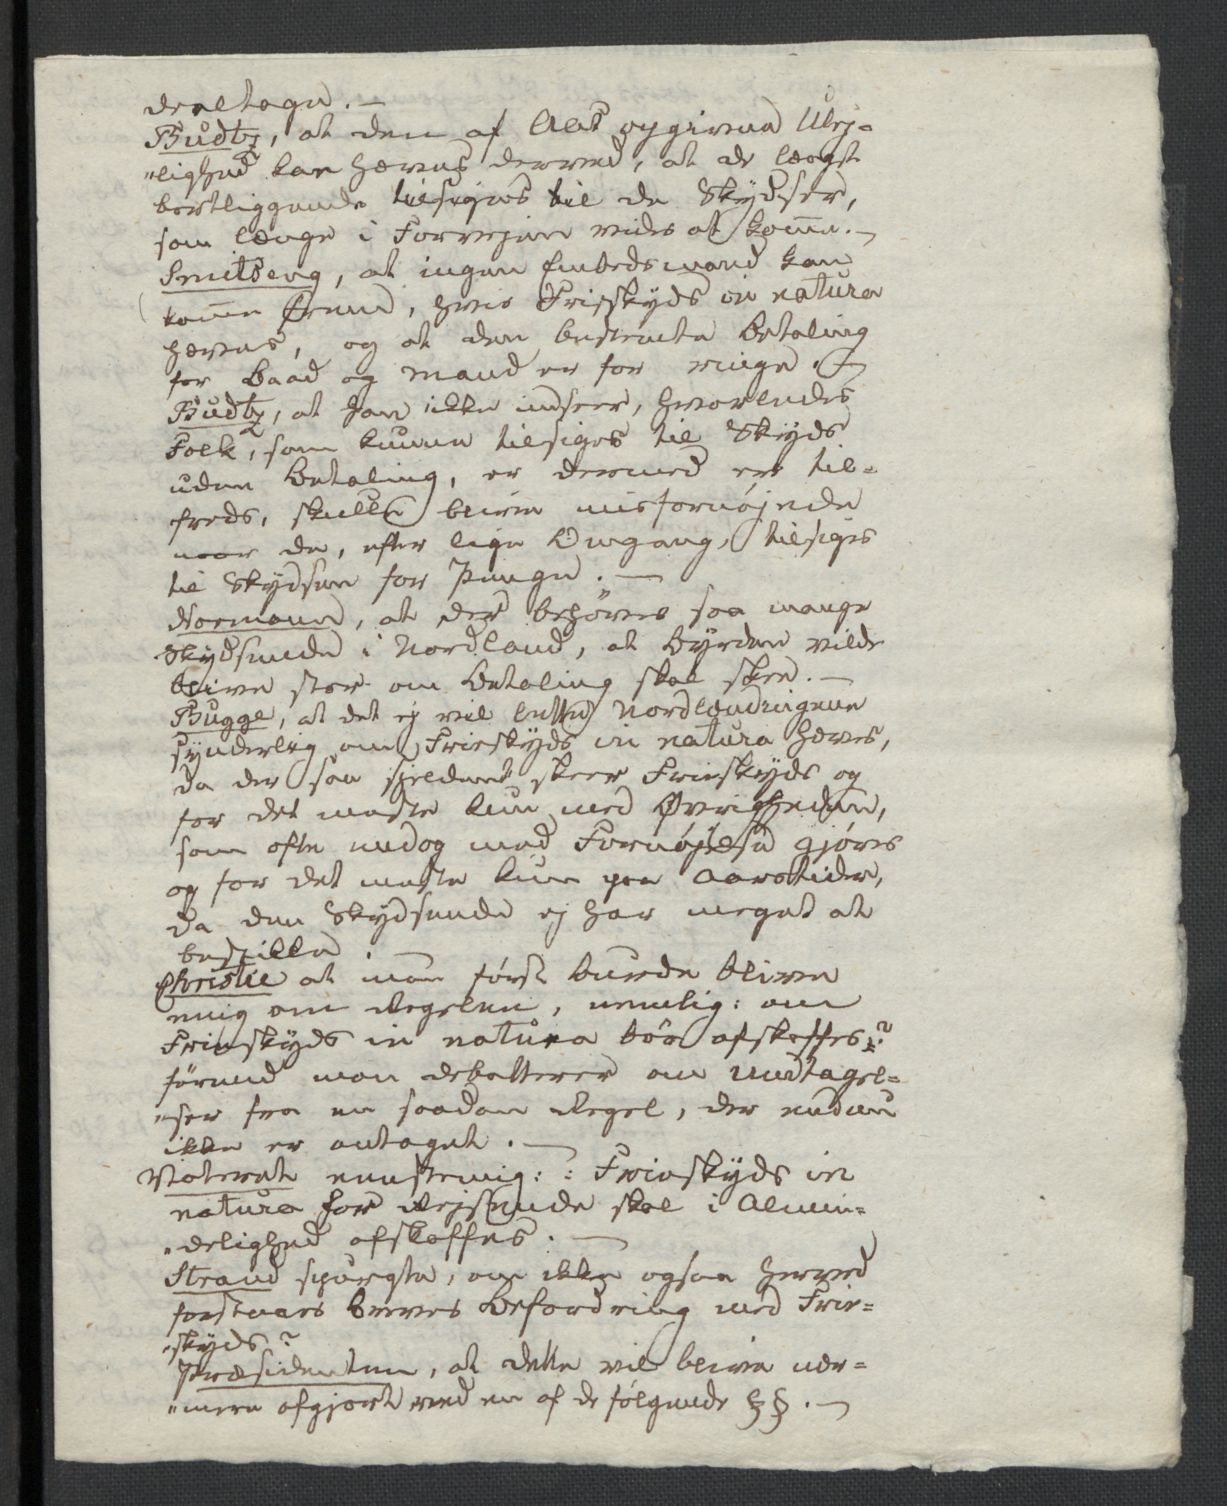 deeltagen. —
Budtz, at den af Aal opgivne Ulej-
„lighed kan hæves derved, at de længst
bortliggende tilsiges til de Skydser,
som længe i Forvejen vides at kom̅e. —
Smitberg, at ingen Embedsmand kan
kom̅e frem, hvis Friskyds in natura
hæves, og at den bestemte Betaling
for Baad og Mand er for ringe. —
Budtz, at han ikke indseer, hvorledes
Folk, som kunne tilsiges til Skyds
uden Betaling, er dermed er til-
freds, skulle blive misfornøjede
naar de, efter lige Omgang, tilsiges
til Skydsen for Penge. —
Normann, at der behøves saa mange
Skydsende i Nordland, at Byrden vilde
blive stor om Betaling skal skee. —
Bugge, at det ej vil lette Nordlændingene
synderlig om Frieskyds in natura hæves,
da der saa sjeldent skeer Frieskyds og
for det meste kun med Øvrigheden,
som ofte endog med Fornøjelse gjøres
og for det meste kun paa Aarstider,
da den Skydsende ej har meget at
bestille. —
Christie at man først burde blive
enig om Regelen, nemlig: om
Frieskyds in natura bör afskaffes?
förend man debatterer om Undtagel-
„ser fra en saadan Regel, der endnu
ikke er antaget. —
Voteret eenstemig: : Frieskyds in
natura for Rejsende skal i Almin-
„delighed afskaffes. —
Strand spurgte, om ikke ogsaa herved
forstaaes Breves Befordring med Frie-
„skyds?
Præsidenten, at dette vil blive nær-
„mere afgjort ved en af de følgende §§. —